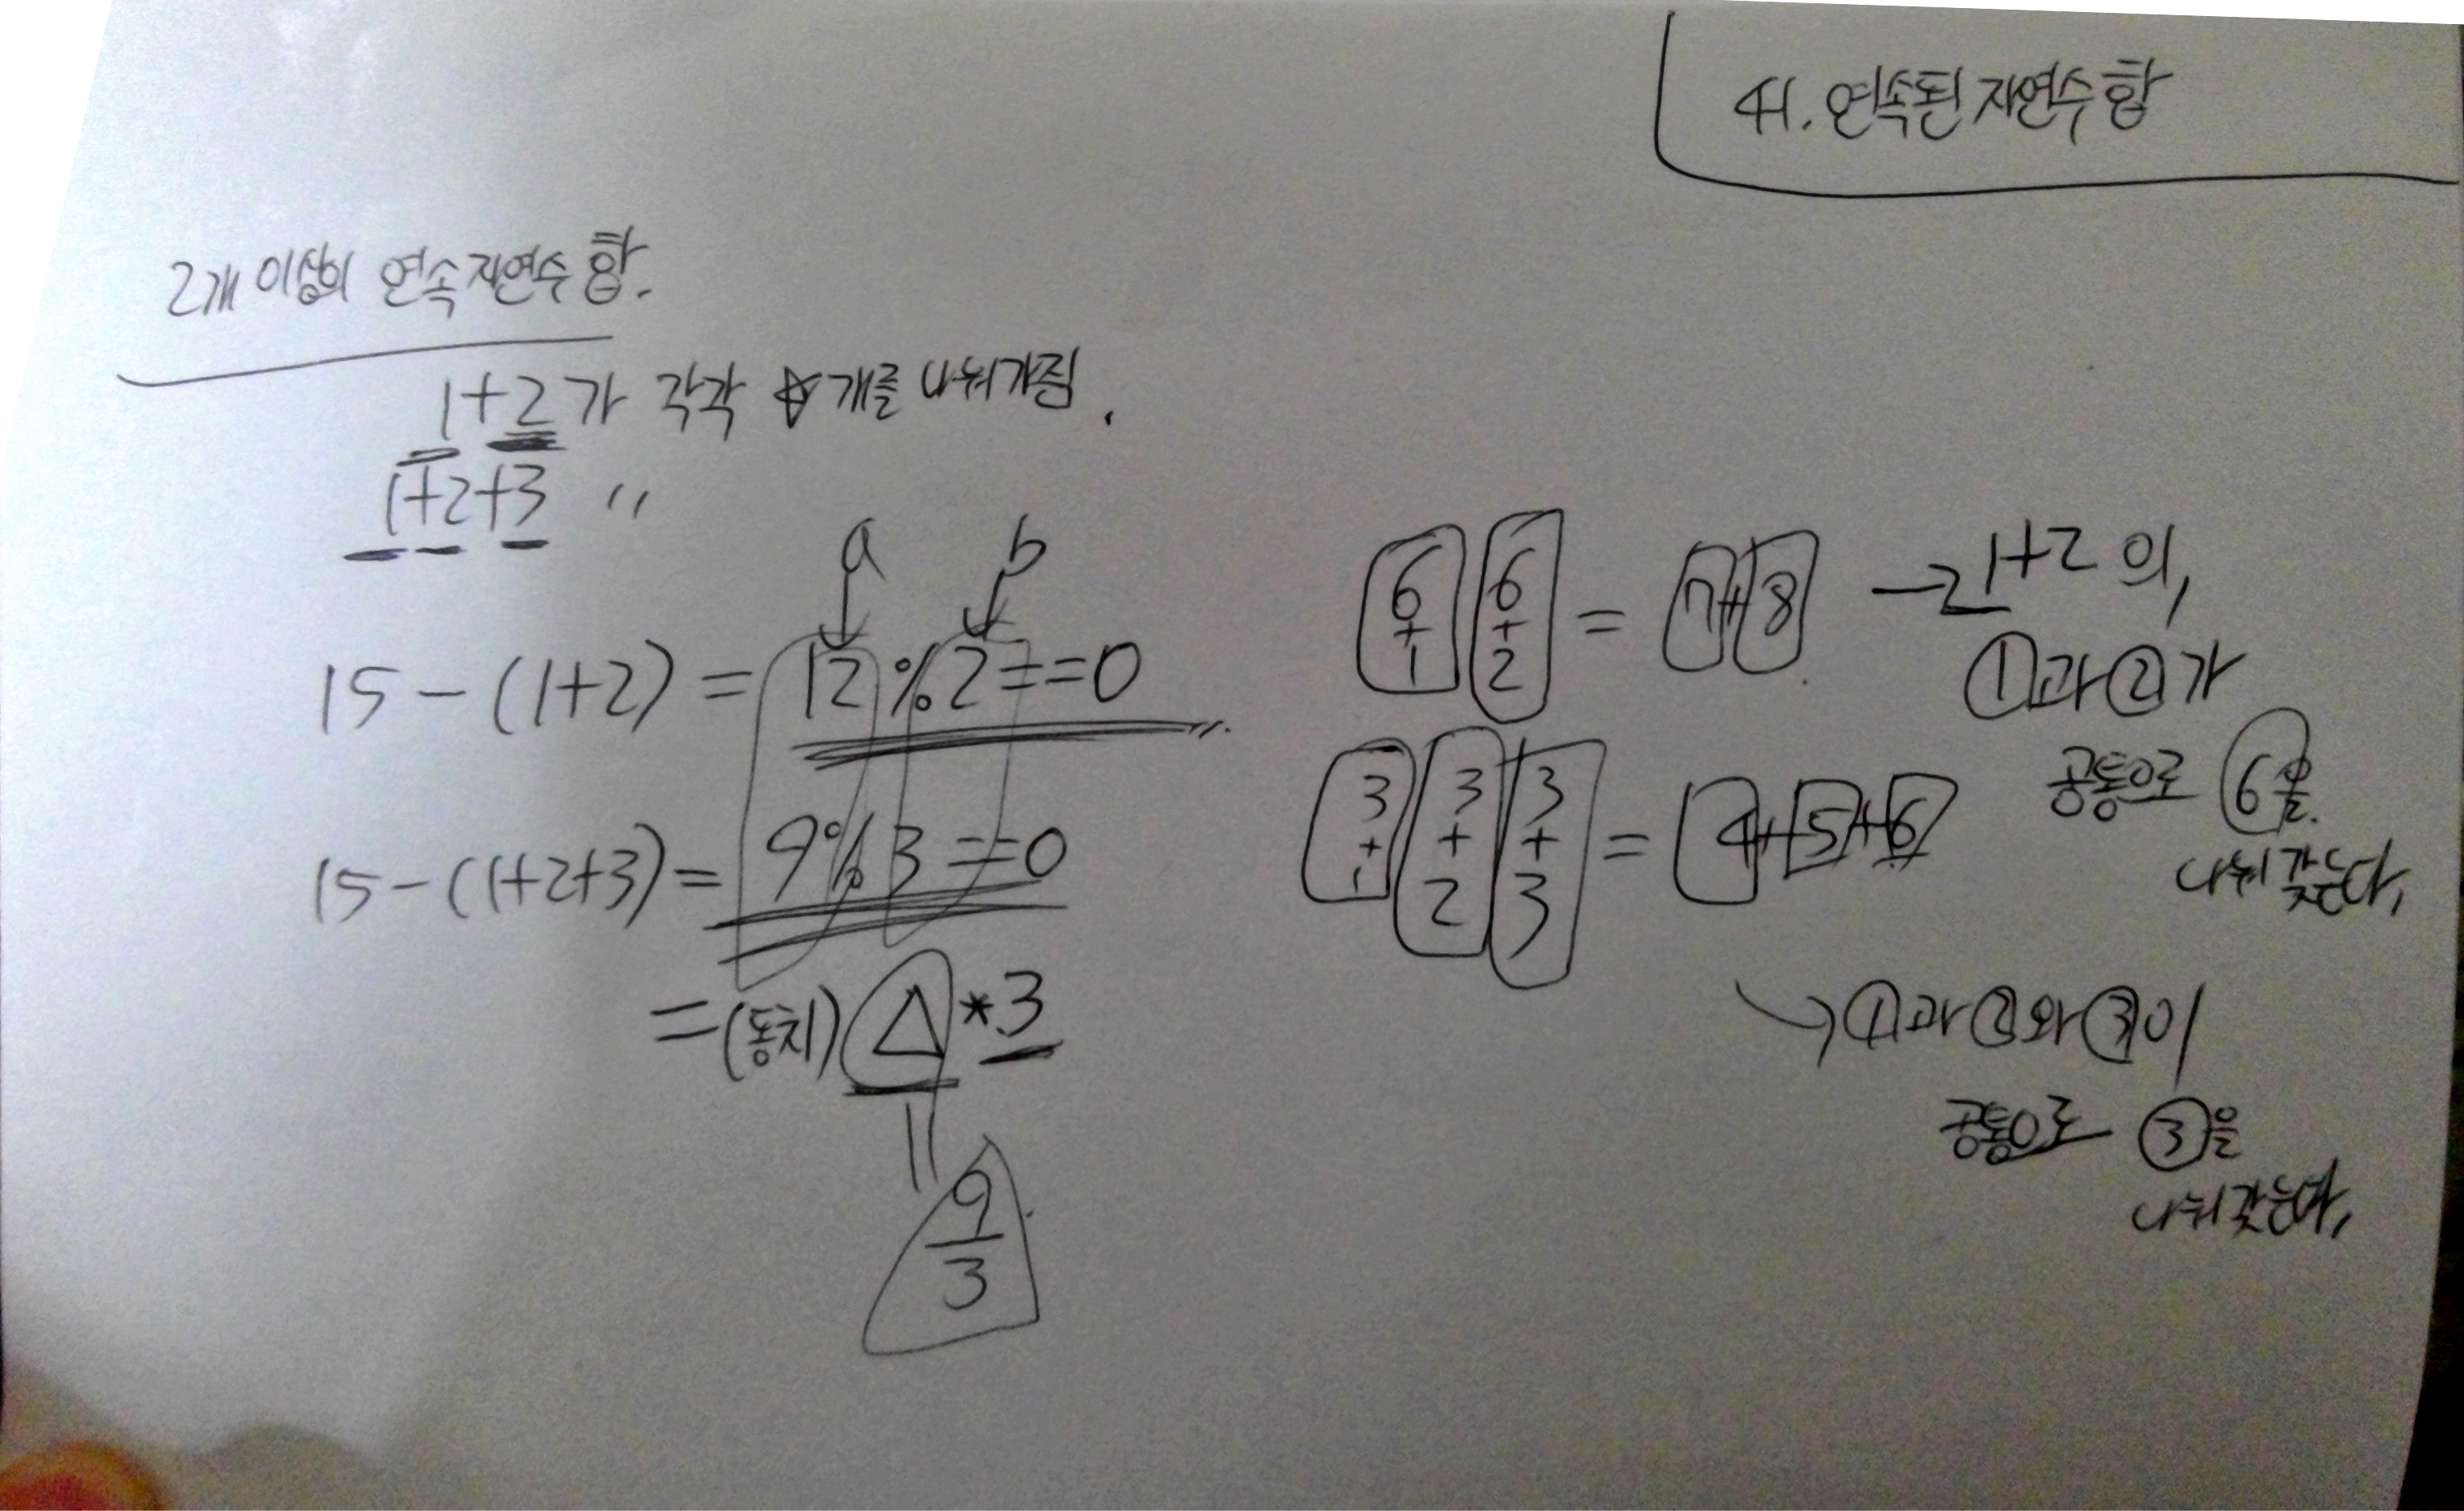 41. 연속된 자연수 합
2개 이상의 연속 자연수 합.
1+2가 각각 ☆개를 나눠가짐.
1+2+3 〃
a b
15-(1+2) = 12%2==0
15-(1+2+3) = 9%3==0
=(동치) △*3
||
9
3
6 6
+ + = 7+8
1 2
→ 1+2 의,
①과 ②가
공통으로 6을
나눠 갖는다,
3 3 3
+ + + = 4+5+6
1 2 3
→ ①과 ②와 ③이
공통으로 ③을
나눠갖는다,